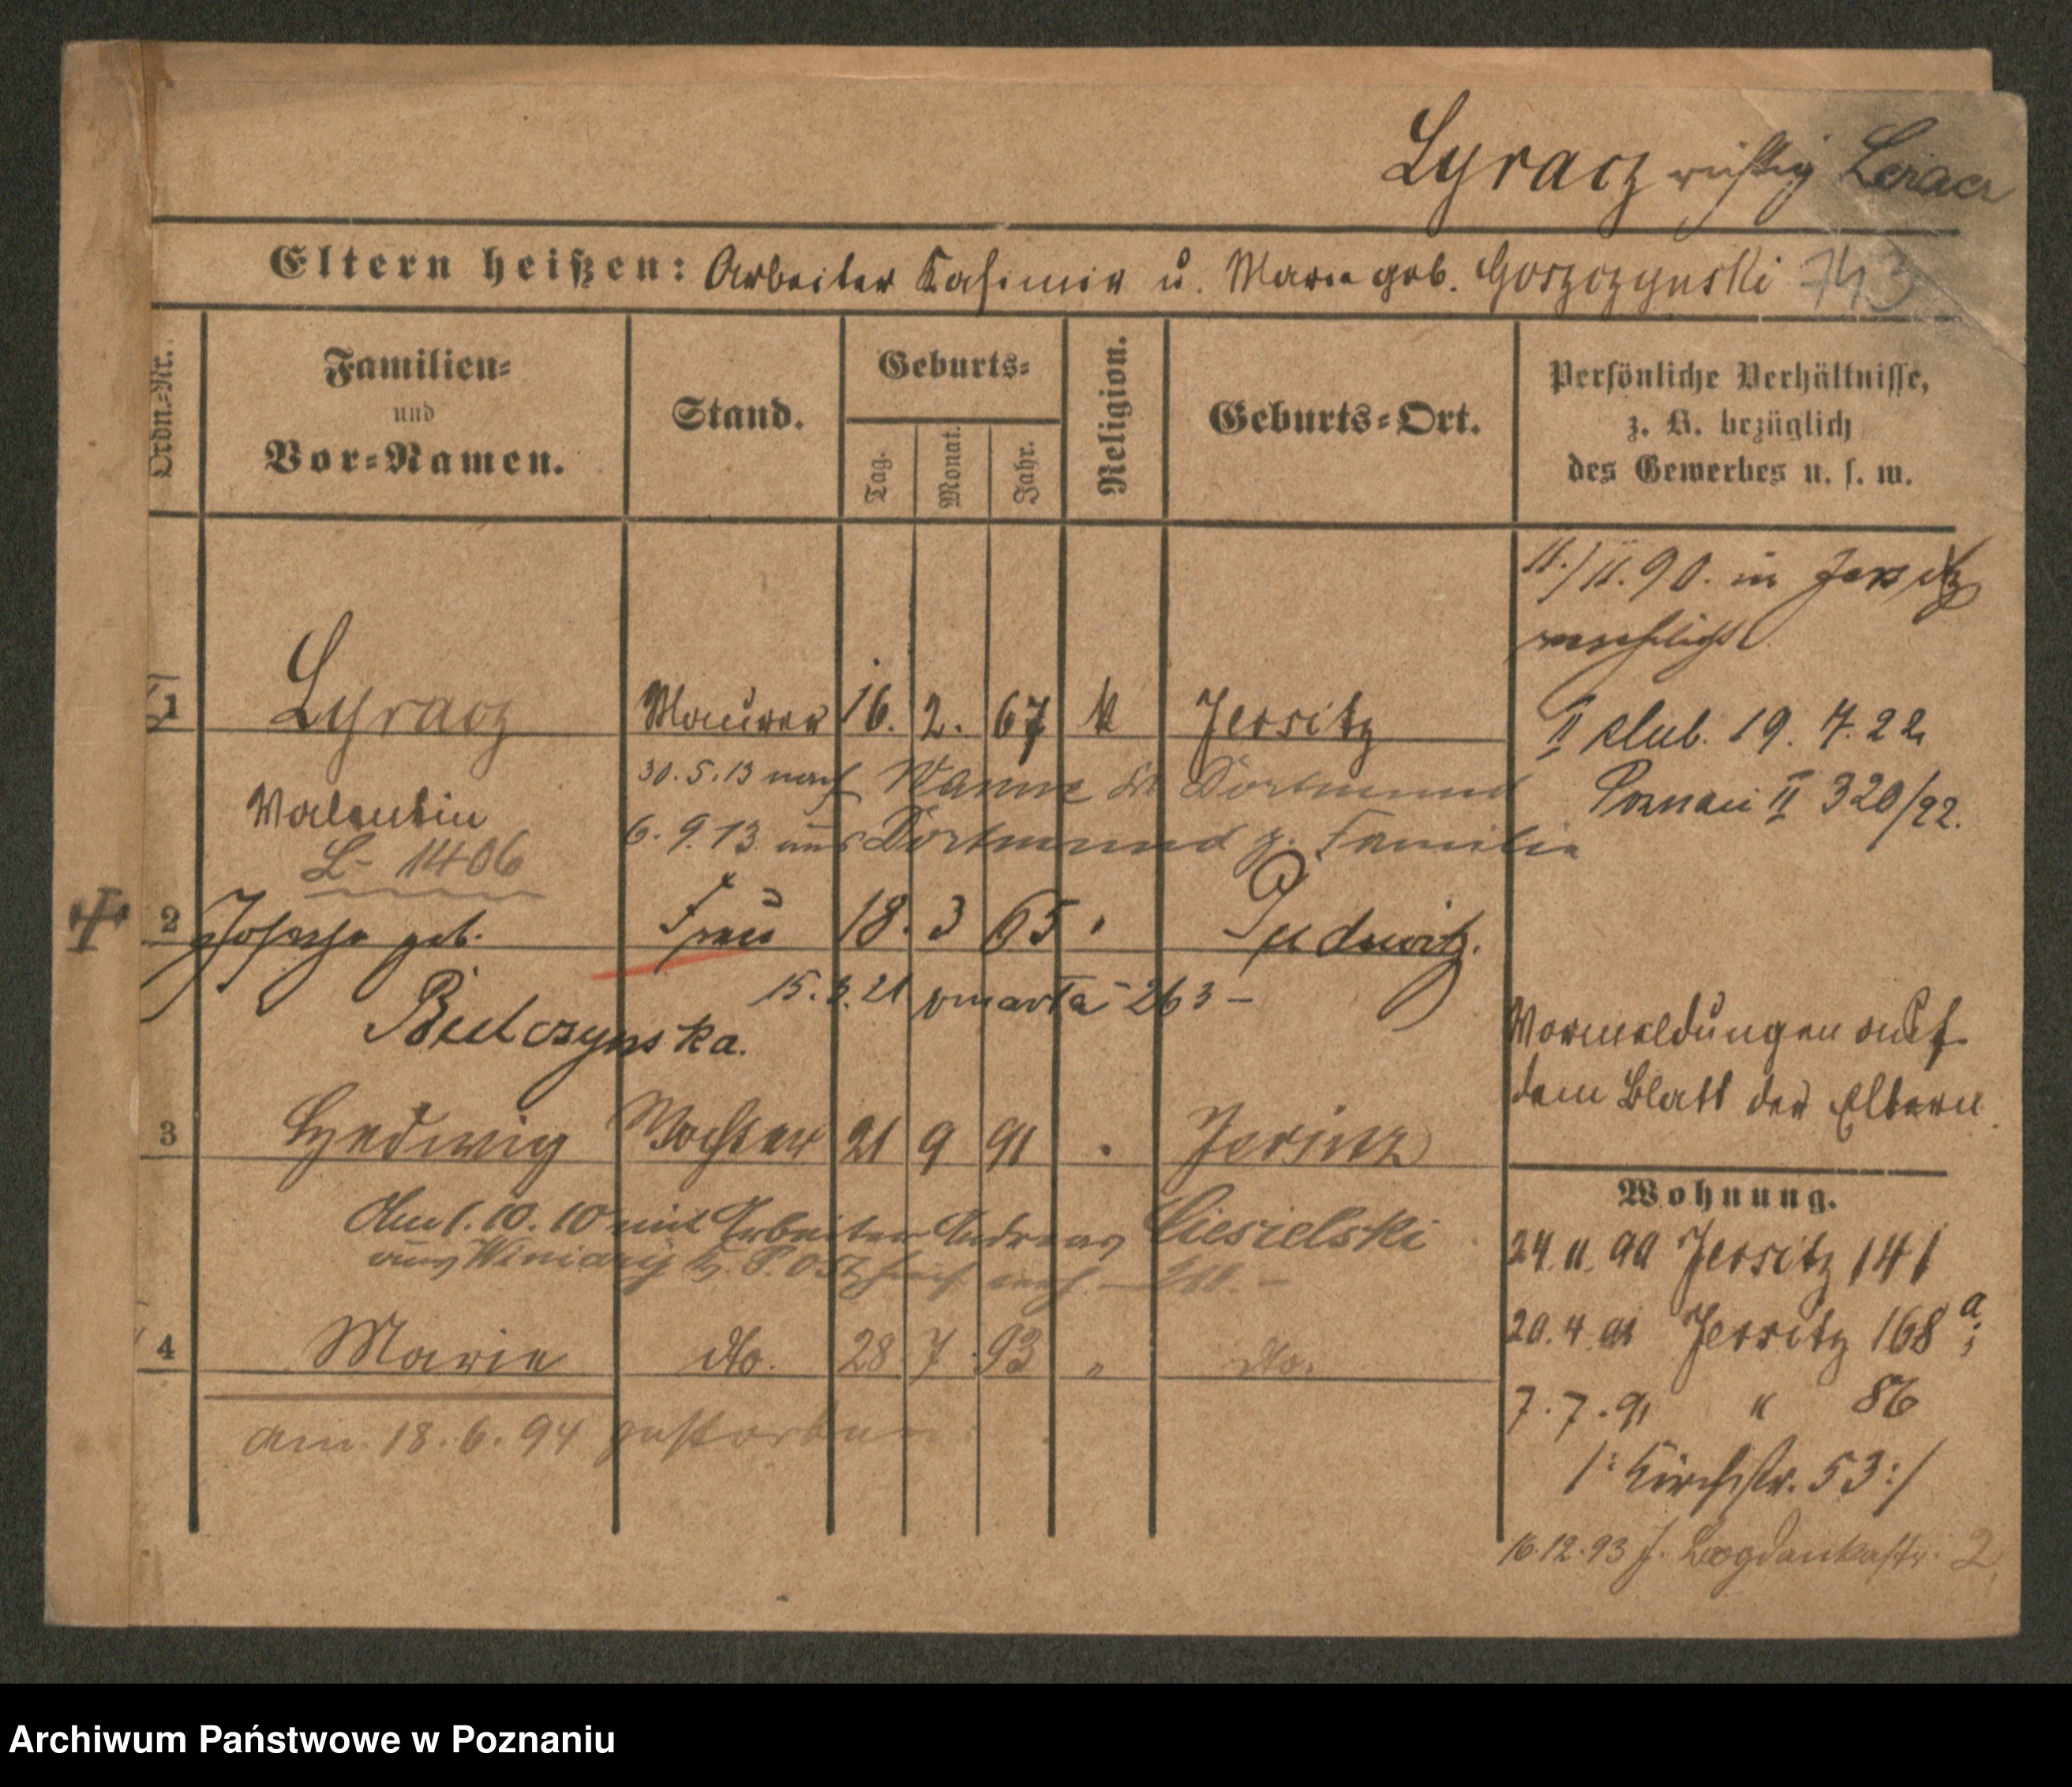 Lyracz richtig Leracz
Eltern heißen: Arbeiter Kasimir u. Marie geb. Goszczynski 743
Ordn.-Nr.
Familien- und Vor-Namen.
Stand.
Geburts-
Tag.
Monat.
Jahr.
Religion.
Geburts-Ort.
Persönliche Verhältnisse,
z. B. bezüglich
des Gewerbes u. s. w.
11./11.90. in Jersitz
verehelicht
1 Lyracz Maurer 16. 2. 67 k Jersitz
II slub. 19. 7. 22
30.5.13 nach Wanne Dortmund
Poznań II 320/22.
Valentin
6.9.13 aus Dortmund z. Familie
L- 1406
2 Josefa geb. Frau 18. 3 65 " Pudewitz.
15.3.21 umarła 263 –
Butczynska.
Vormeldungen auf
dem Blatt der Eltern
3 Hedwig Tochter 21 9 91 " Jersitz
Wohnung.
Am 1.10.10 mit Arbeiter Andreas Ciesielski
aus Winiary
24.11.90 Jersitz 141
20.4.91 Jersitz 168 a;
4 Marie dto. 28 7 93 " dto.
7.7.91 " 86
am 18.6.94 gestorben
/: Kirchstr. 53 :/
16.12.93 J. Bogdankastr. 2
Archiwum Państwowe w Poznaniu